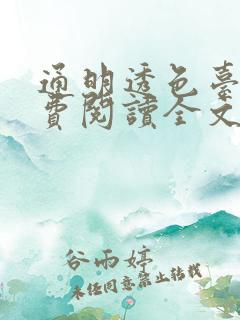 通明透色臺
費閱讀全文
谷雨婷
未經同意禁止轉載